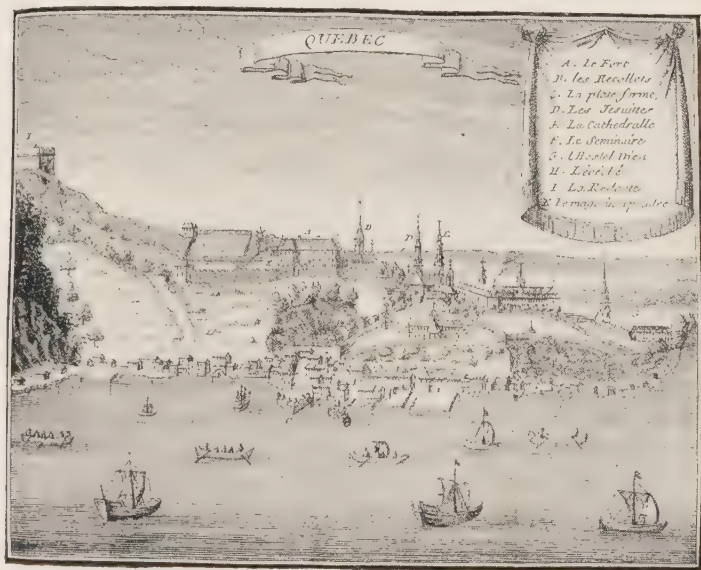 QUEBEC
A. Le Fort
B. les Recollets
C. La plate forme,
D. Les Jesuittes
E. La Cathedralle
F. Le Seminaire
G. l'Hostel Dieu
H. L'évêché
I La Redoute
K le magasin a poudre
I
A
D